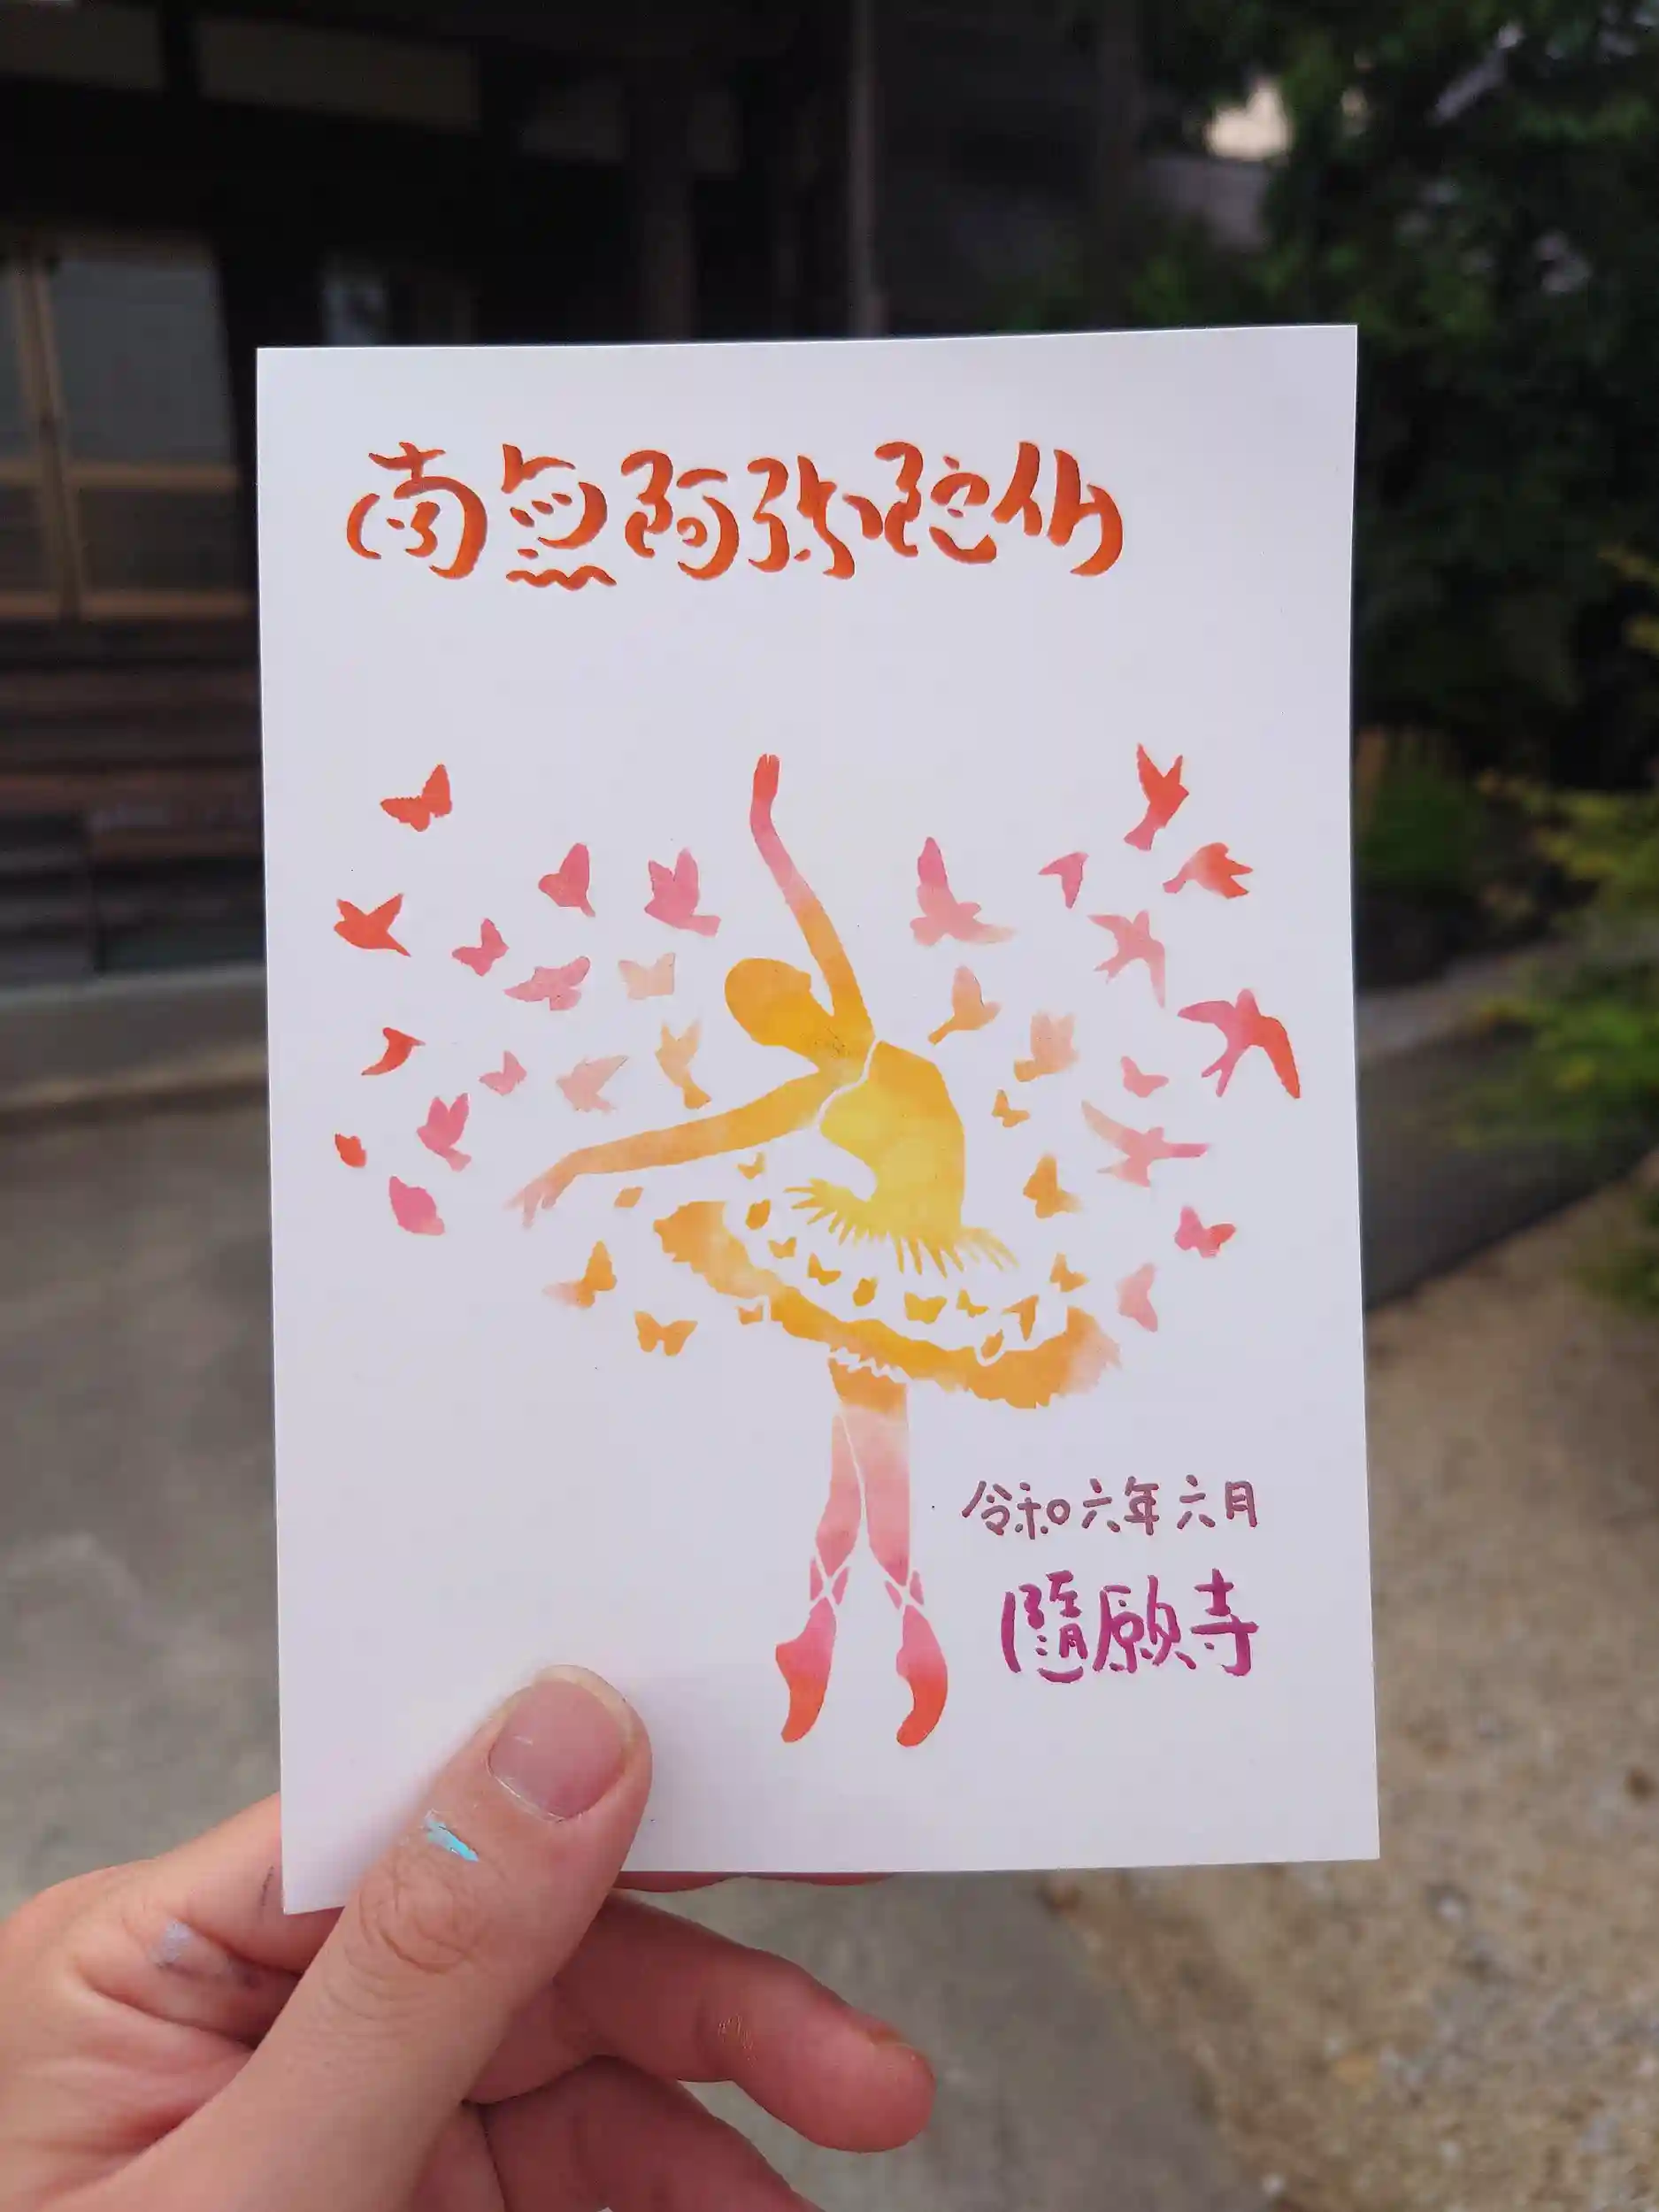 南無阿弥陀仏
令和六年六月
隨願寺